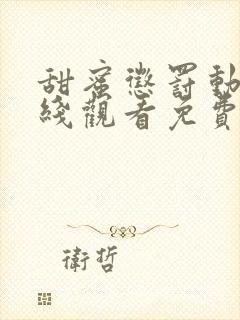 甜蜜懲罰動
綫觀看免費
衛哲